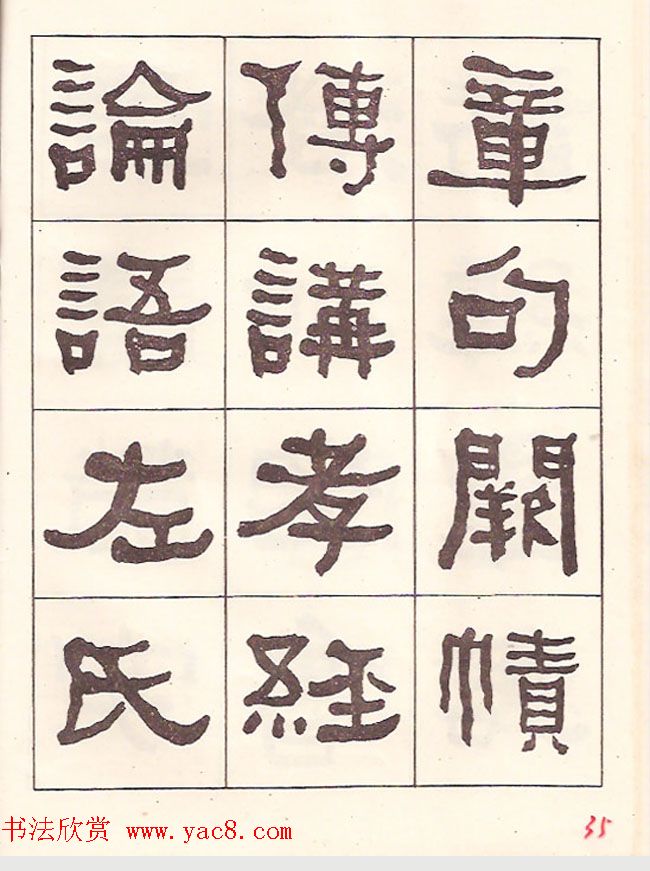 章句闕幘
傳講孝經
論語左氏
书法欣赏 www.yac8.com
35